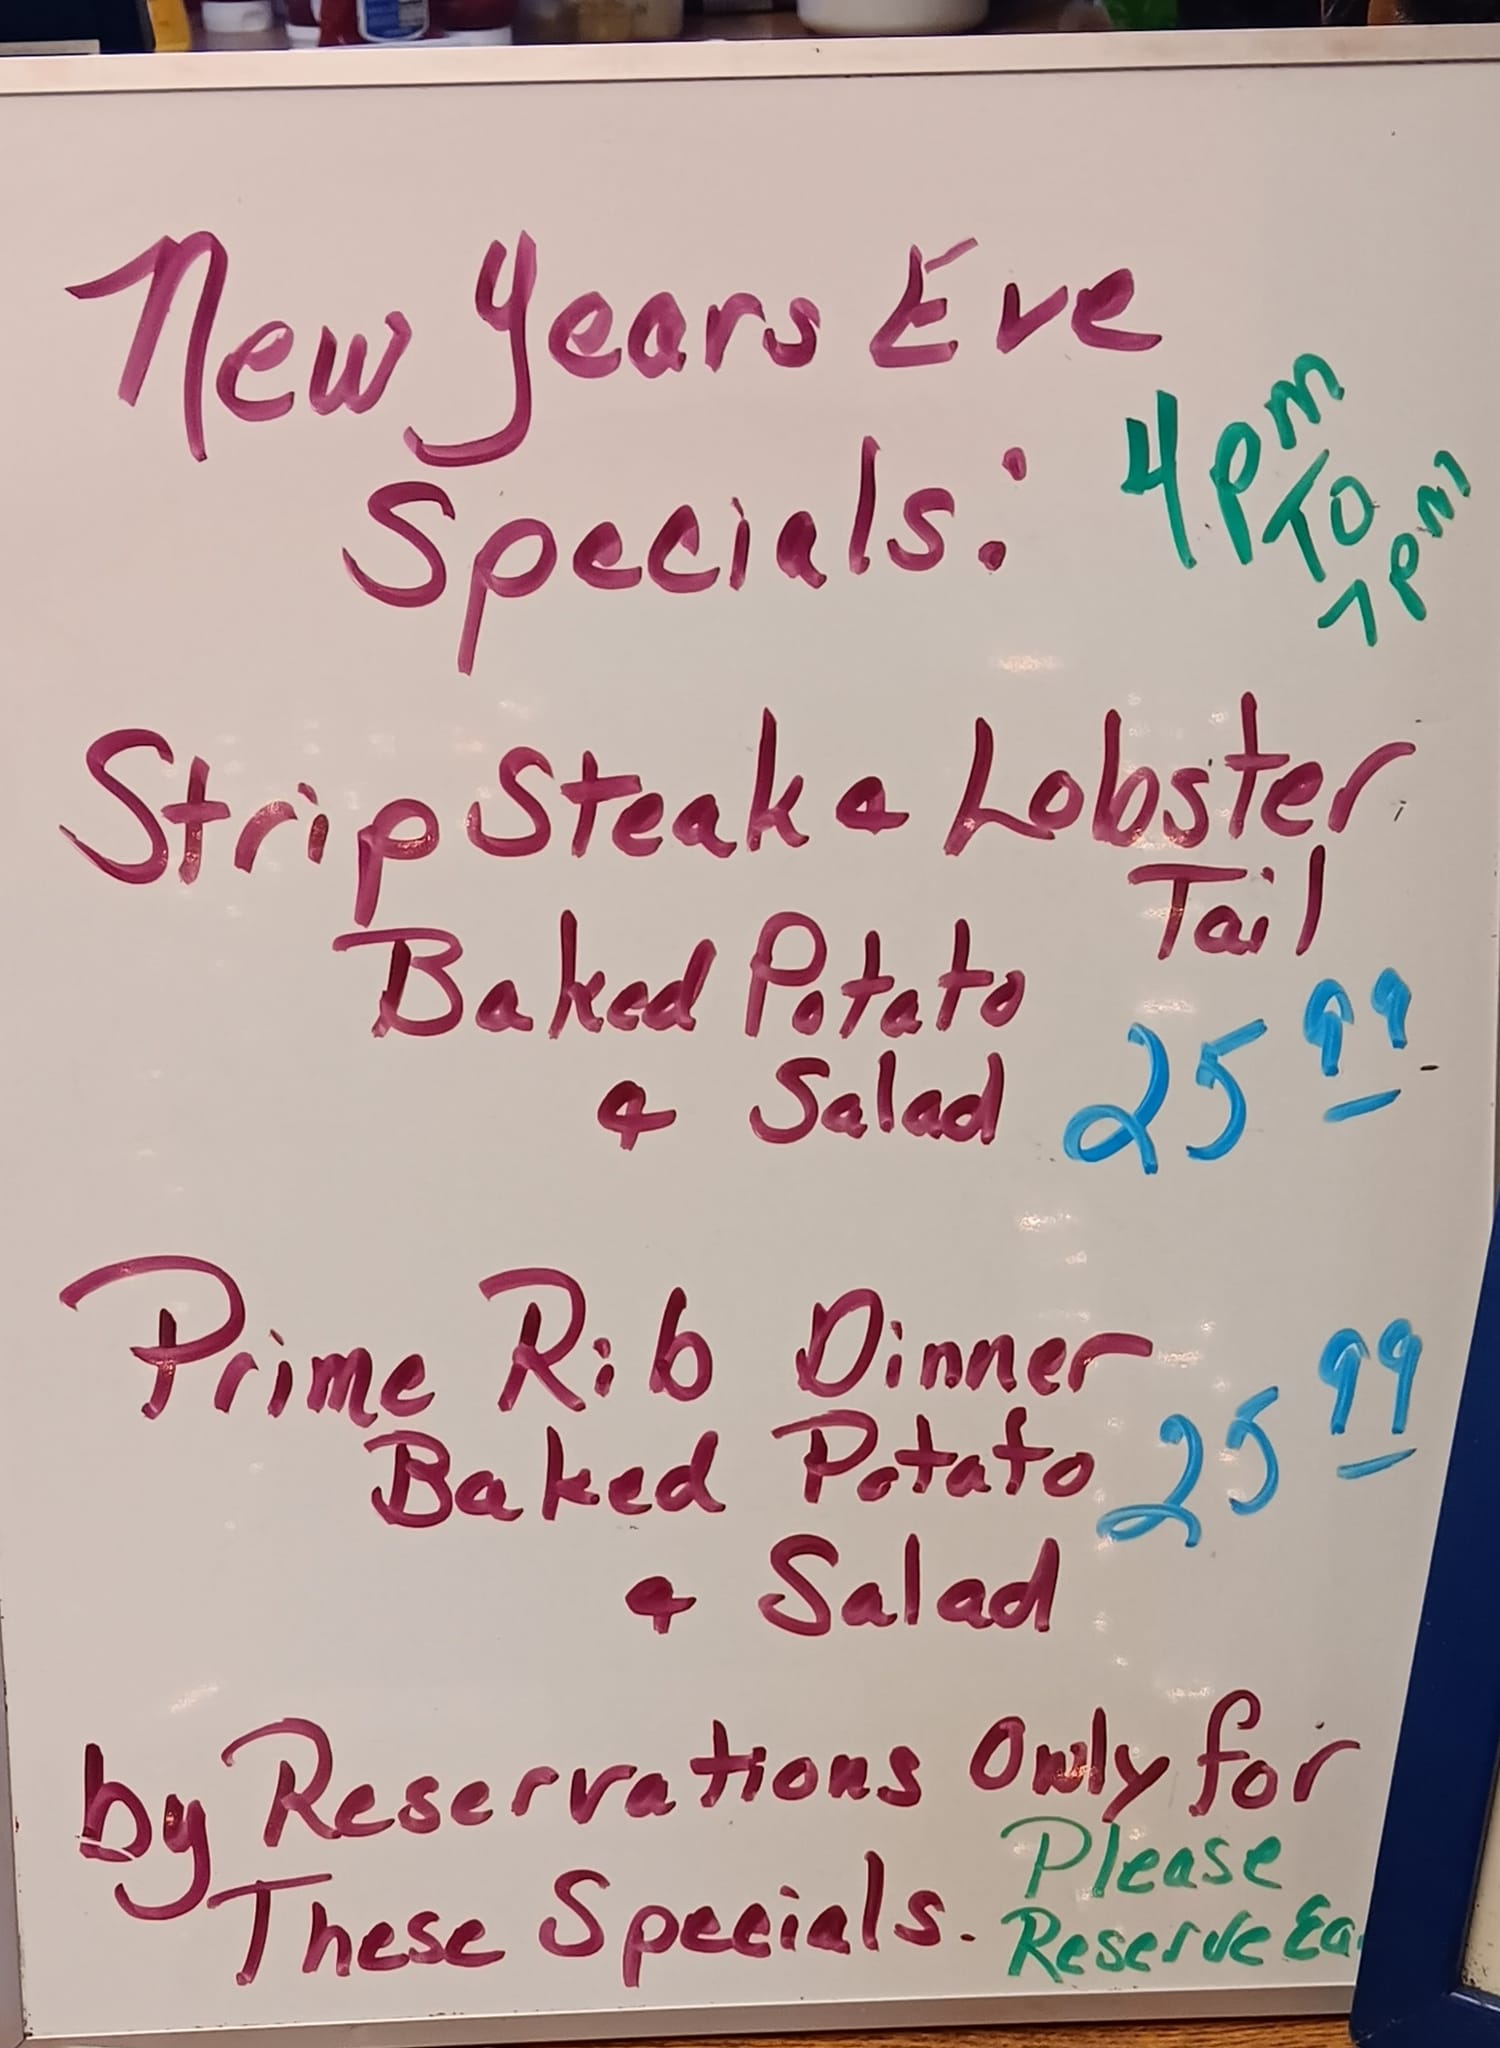 New Years Eve
Specials:
4pm
TO
7pm
Strip Steak & Lobster
Tail
Baked Potato
& Salad 25 99
Prime Rib Dinner
Baked Potato 25 99
& Salad
by Reservations Only for
These Specials.
Please
Reserve